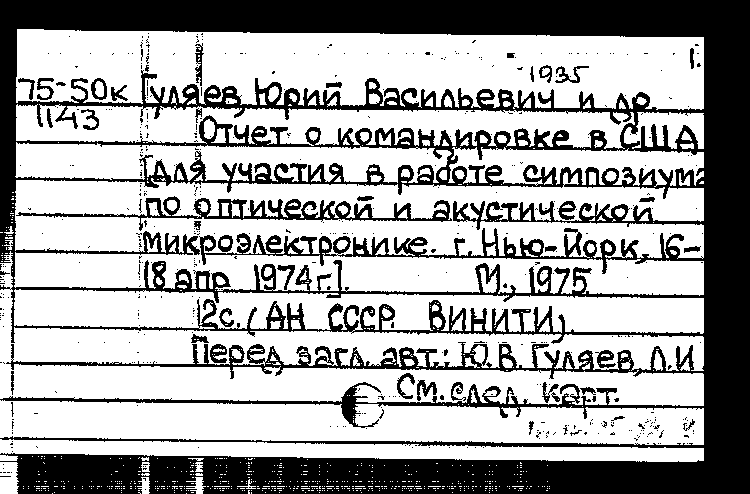 1.
1935
75-50к Гуляев, Юрий Васильевич и др.
1143
Отчет о командировке в США
[для участия в работе симпозиума
по оптической и акустической
микроэлектронике. г. Нью-Йорк, 16-
18 апр 1974г.]. М., 1975
12с. (АН СССР. ВИНИТИ).
Перед загл. авт.: Ю.В. Гуляев, Л.И.
См. след. карт.